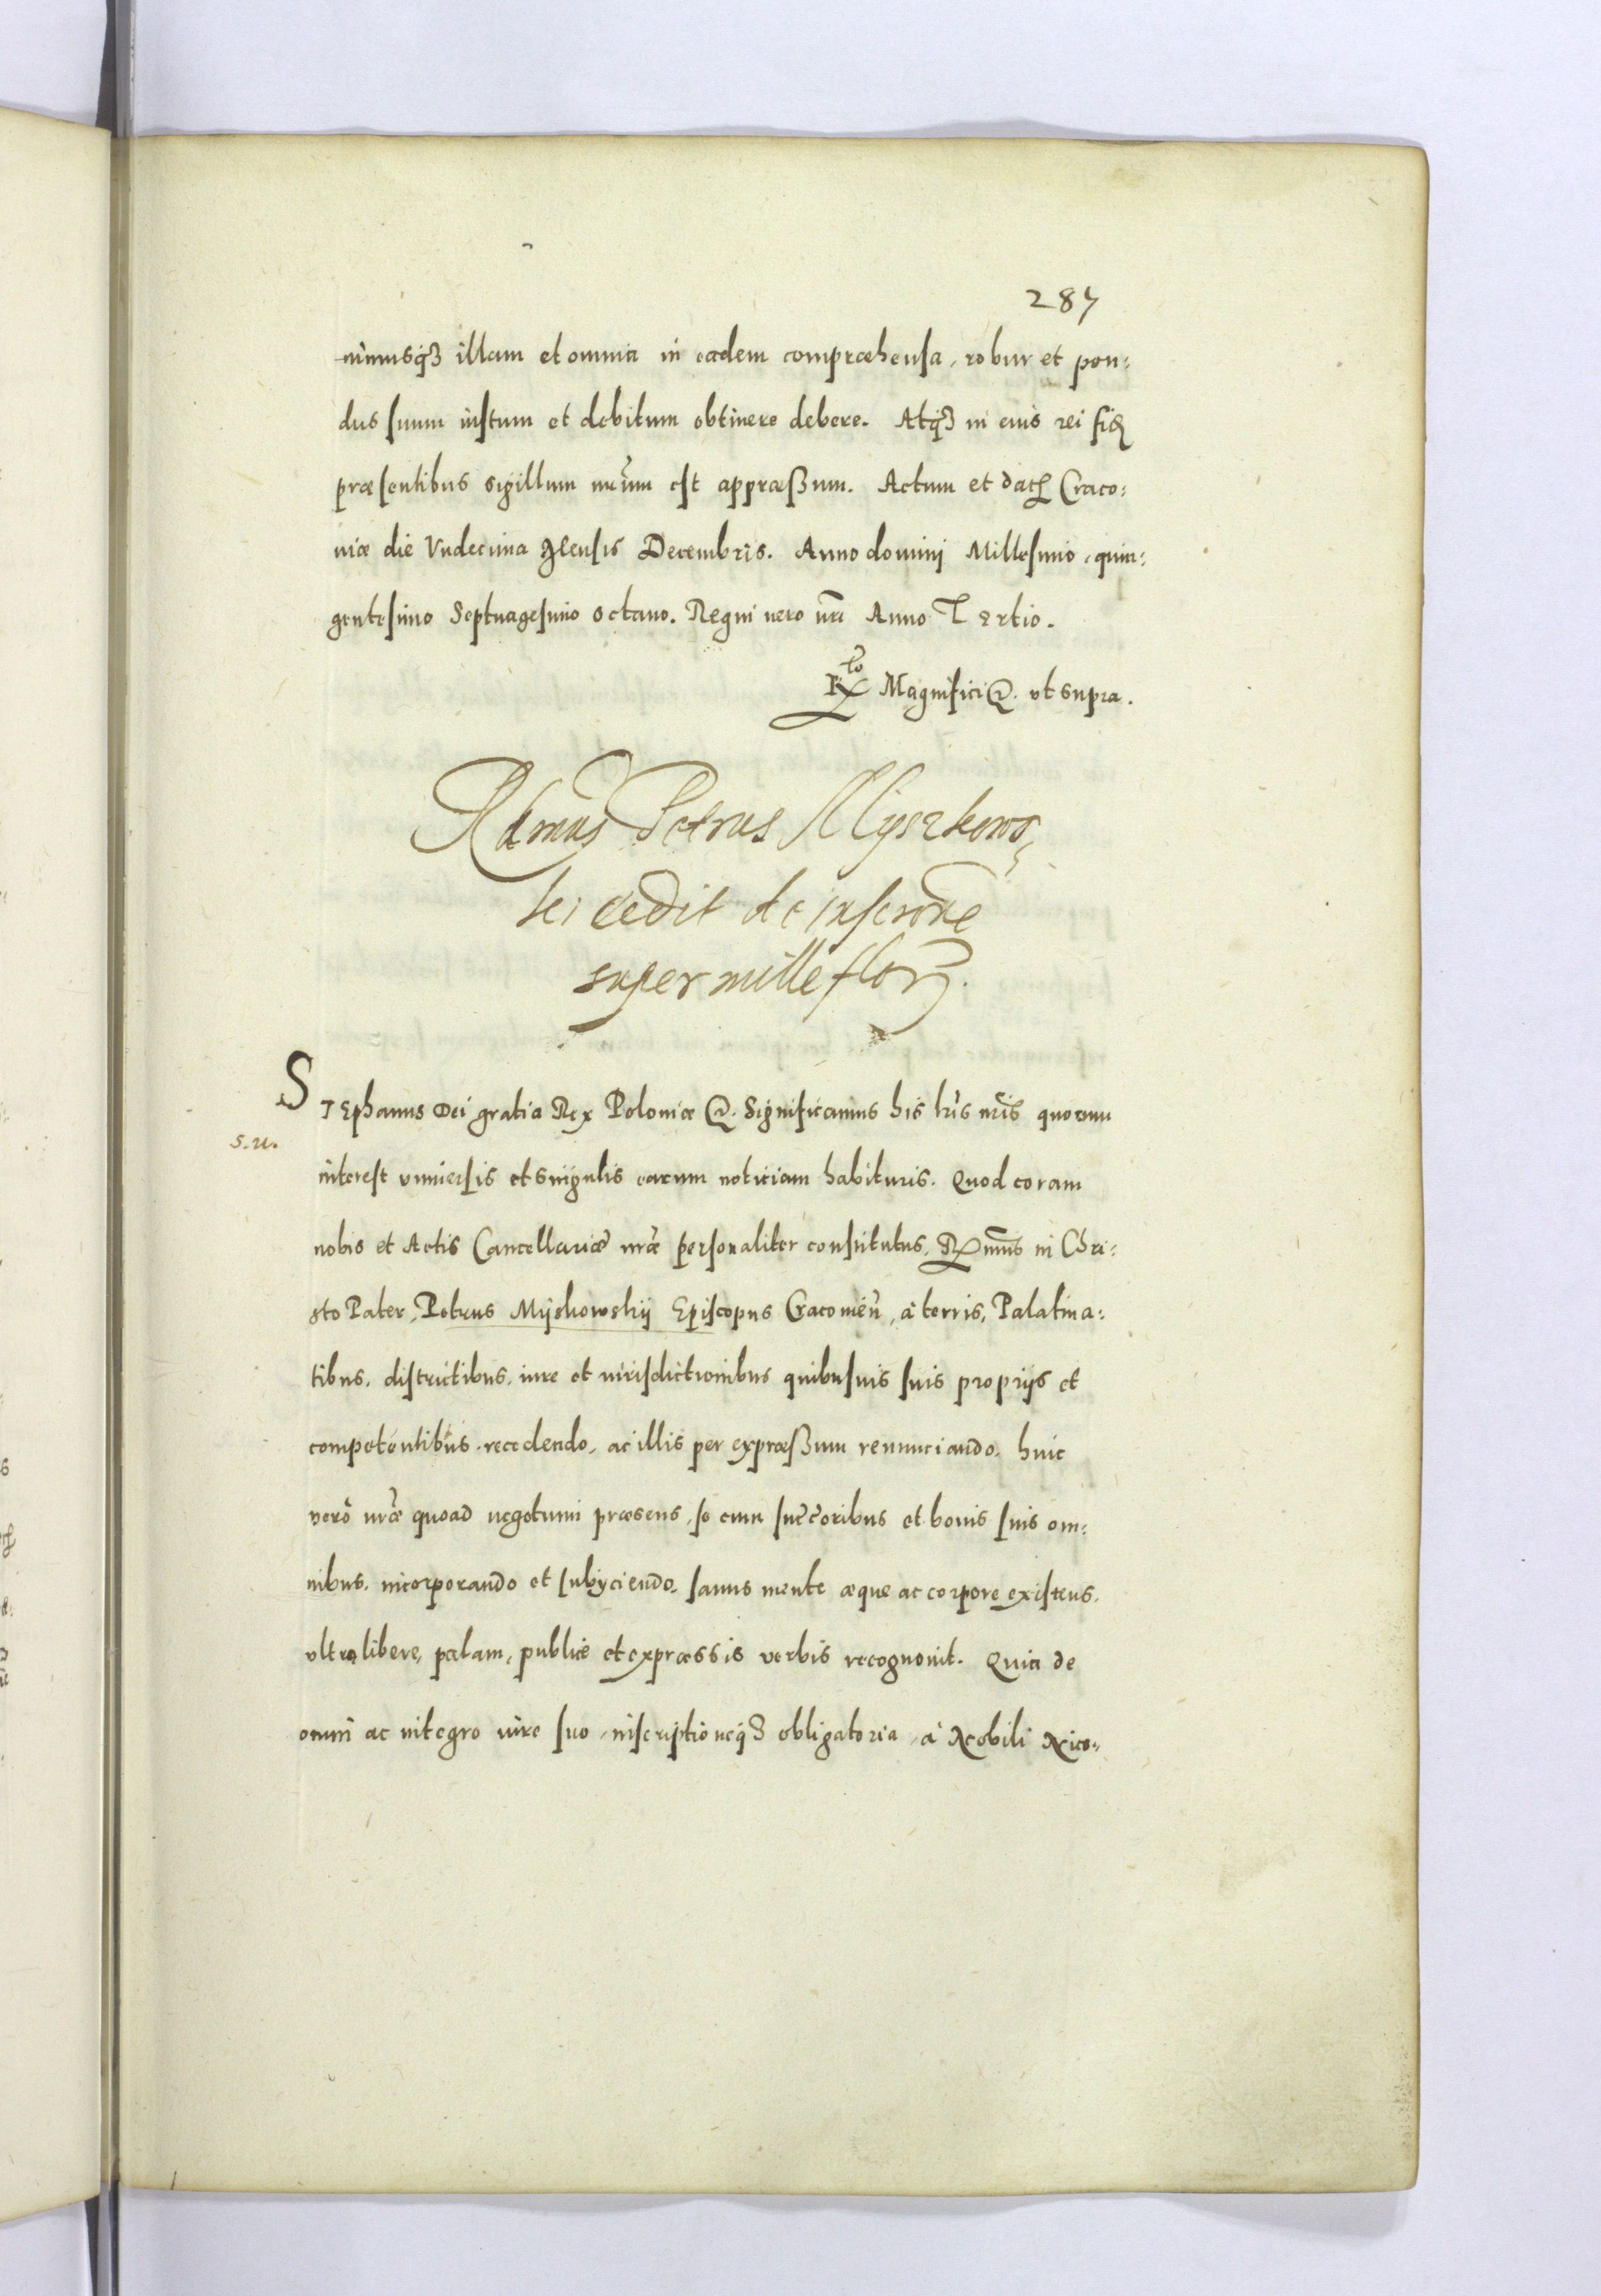 287
nimusq3 illam et omnia in eadem compræhensa, robur et pon:
dus suum iustum et debitum obtinere debere. Atq3 in eius rei fid
præsentibus sigillum nrūm est appræssum. Actum et dat Craco:
niæ die Vndecima Mensis Decembris. Anno dominj Millesimo, quin:
gentesimo Septuagesimo octauo. Regni uero nrī Anno Tertio.
Rlo Magnifici &. ut supra.
Rdmus Petrus Myszkows
ki cedit de inscrone
super mille flor.
STEphanus Dei gratia Rex Poloniæ &. Significamus his lris nris quorum
S. U.
interest uniuersis et singulis earum noticiam habituris. Quod coram
nobis et Actis Cancellariæ nræ personaliter constitutus, Rmus in Chri:
sto Pater, Petrus Myskowskij Episcopus Cracouien̄, à terris, Palatina:
tibus, districtibus, iure et iurisdictionibus quibusuis suis proprijs et
competentibus recedendo, ac illis per expræssum renunciando, huic
verò nræ quoad negotium præsens, se cum succ̄oribus et bonis suis om:
nibus, incorporando et subijciendo, sanus mente æque ac corpore existens,
ultro, libere, palam, publice et expræssis verbis recognouit. Quia de
omni ac integro iure suo, inscriptioneq3 obligatoria, à Nobili Nico: